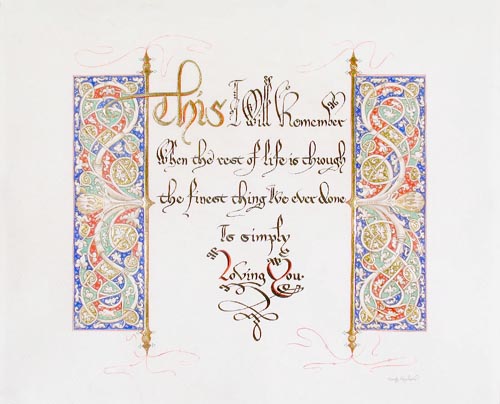 This I Will Remember
When the rest of life is through
the finest thing I've ever done
Is simply
Loving You.